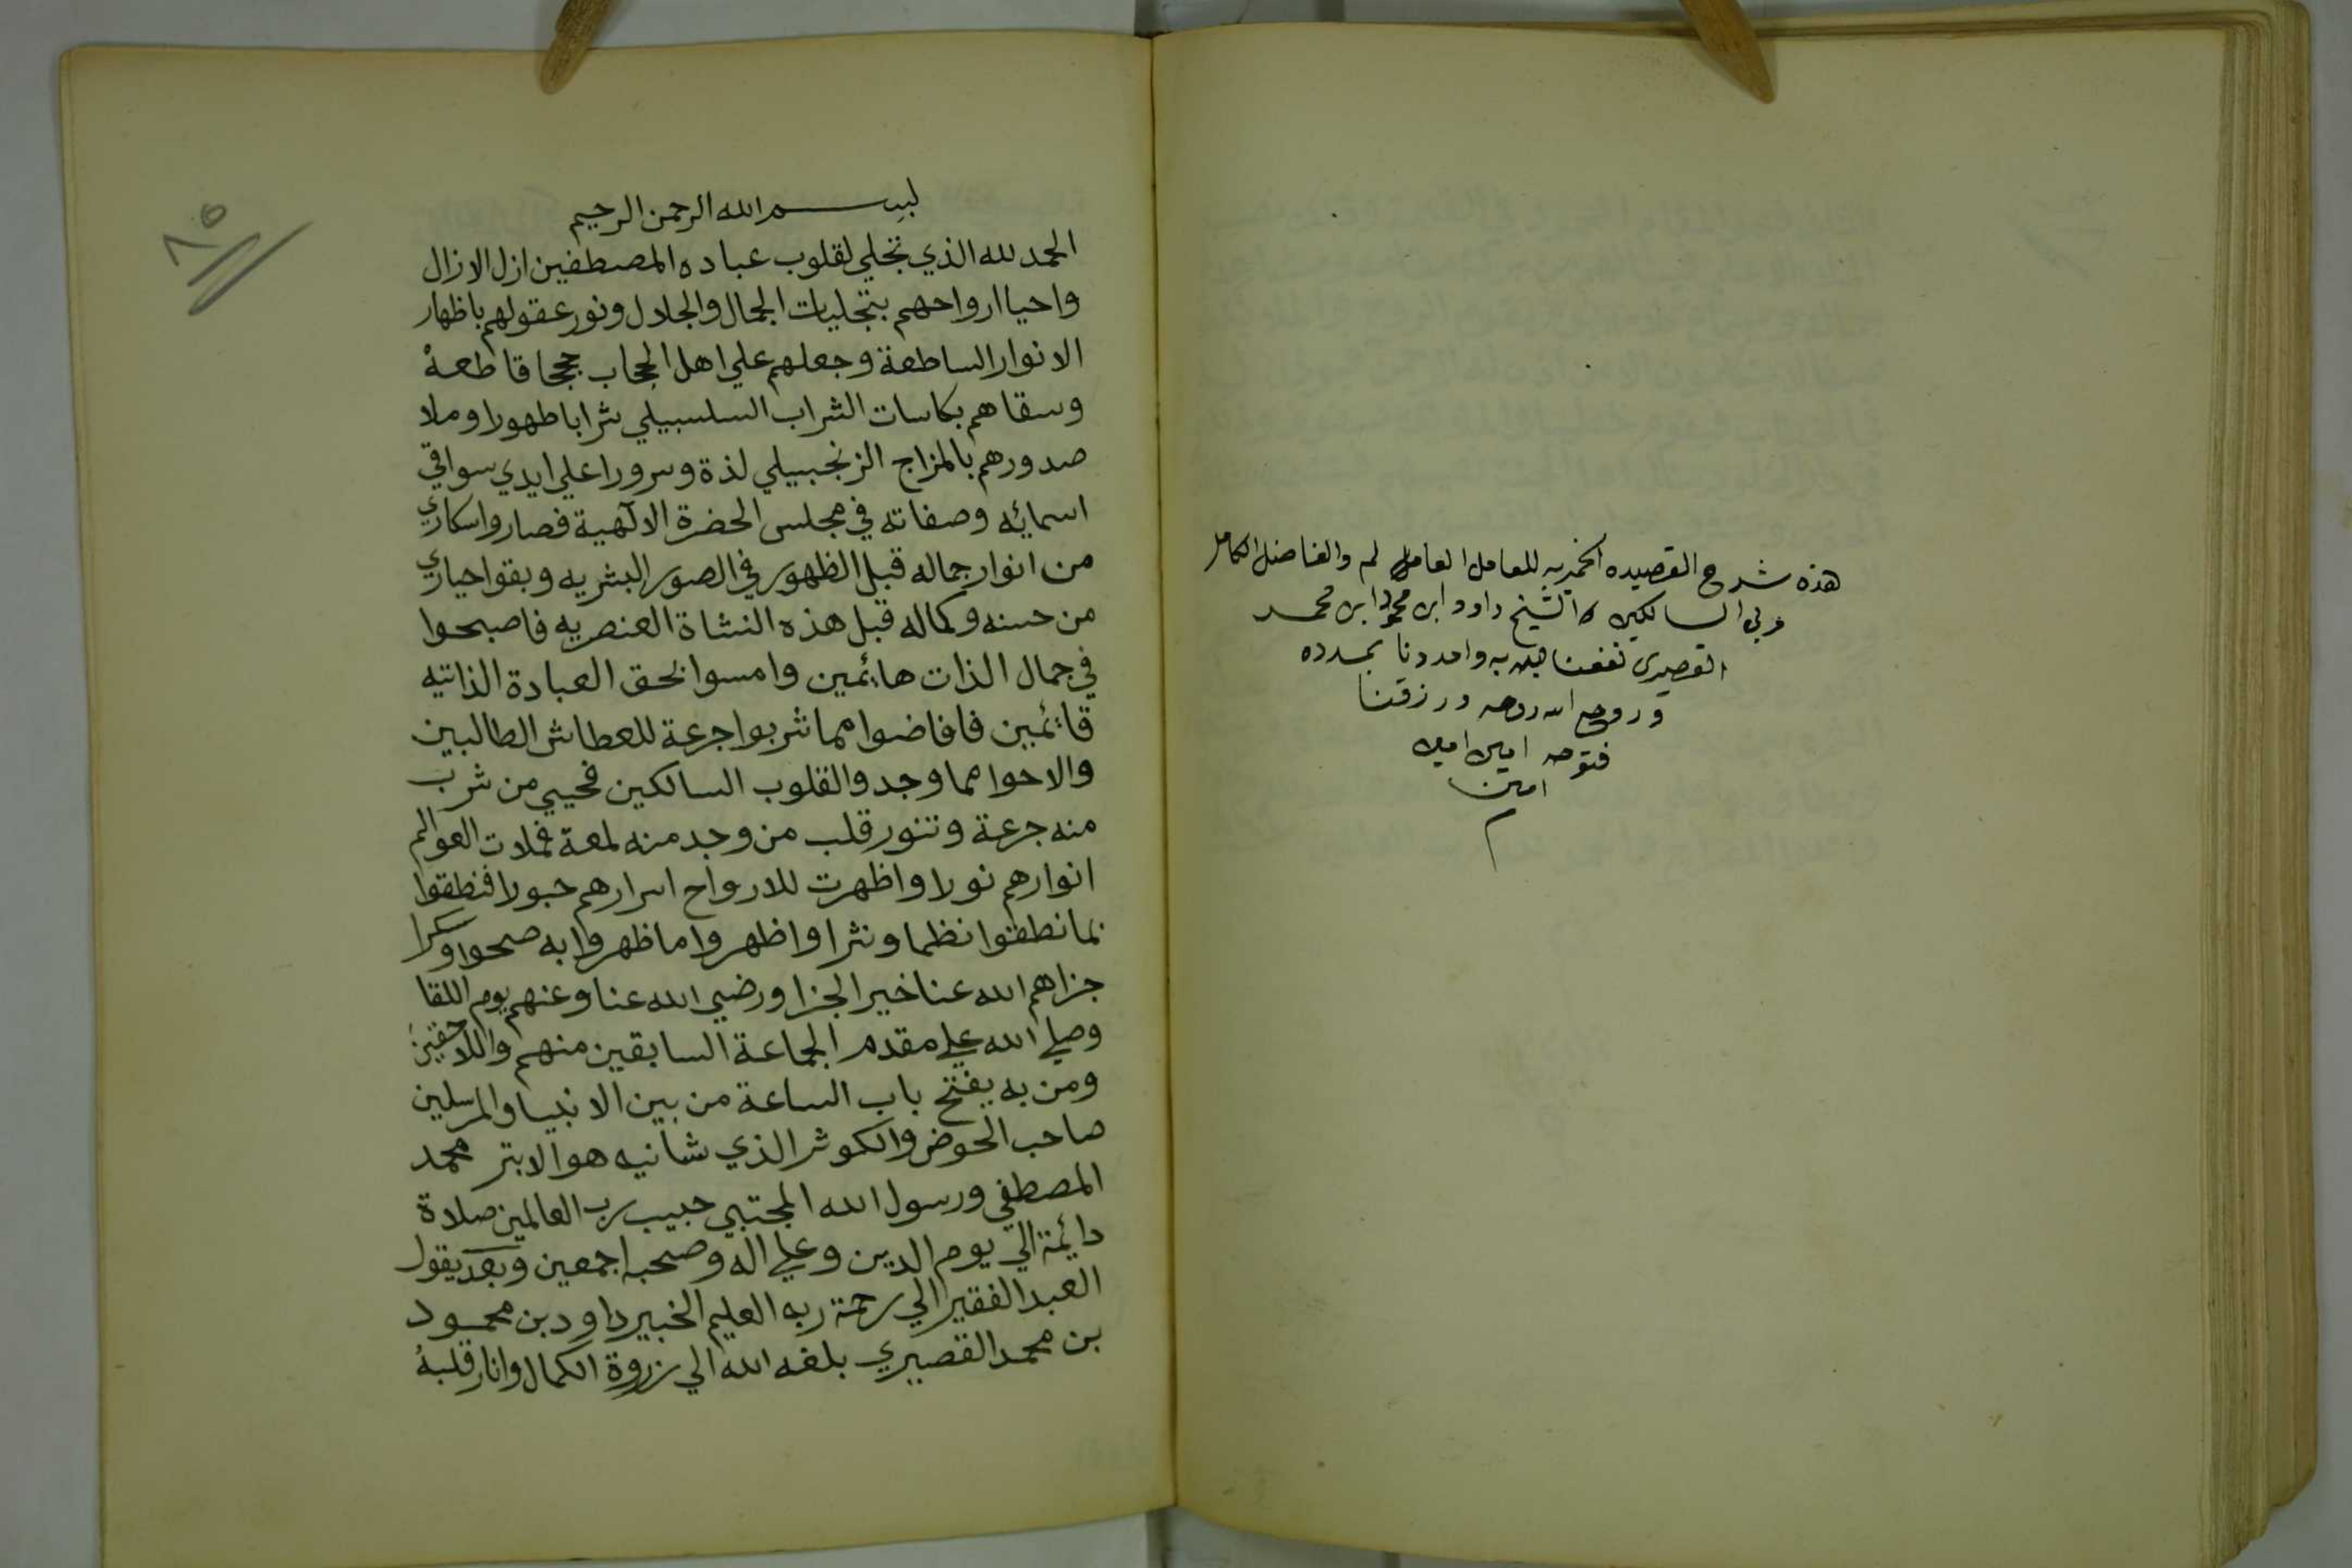 هذه شرح القصيده الخمريه للعامل العامل لم والفاضل الكامل
مربي السالكين الشيخ داود ابن محمود ابن محمد
القصيري نفعنا الله به وامددنا بمدده
وروح الله روحه ورزقنا
فتوحه امين امين
امين
م
٨٥
بسم الله الرحمن الرحيم
الحمد لله الذي تجلي لقلوب عباده المصطفين ازل الازال
واحيا ارواحهم بتجليات الجمال والجلال ونور عقولهم باظهار
الانوار الساطعة وجعلهم علي اهل الحجاب حججا قاطعة
وسقاهم بكاسات الشراب السلسبيلي شرابا طهورا وملا
صدورهم بالمزاج الزنجبيلي لذة وسرورا علي ايدي سواقي
اسمائه وصفاته في مجلس الحضرة الالهية فصاروا سكاري
من انوار جماله قبل الظهور في الصور البشريه وبقوا حياري
من حسنه وكماله قبل هذه النشاة العنصريه فاصبحوا
في جمال الذات هائمين وامسوا بحق العبادة الذاتيه
قائمين فافاضوا مما شربوا جرعة للعطاش الطالبين
والاحوا مما وجدوا لقلوب السالكين فحيي من شرب
منه جرعة وتنور قلب من وجد منه لمعة فملات العوالم
انوارهم نورا واظهرت للارواح اسرارهم حبورا فنطقوا
بما نطقوا نظما ونثرا واظهروا ما ظهروا به صحوا وسكرا
جزاهم الله عنا خير الجزا ورضي الله عنا وعنهم يوم اللقا
وصلي الله علي مقدم الجماعة السابقين منهم واللاحقين
ومن به يفتح باب الساعة من بين الانبيا والمرسلين
صاحب الحوض والكوثر الذي شانيه هو الابتر محمد
المصطفي ورسول الله المجتبي حبيب رب العالمين صلاة
دائمة الي يوم الدين وعلي اله وصحبه اجمعين وبعد يقول
العبد الفقير الي رحمة ربه العليم الخبير داود بن محمود
بن محمد القصيري بلغه الله الي زروة الكمال وانار قلبه